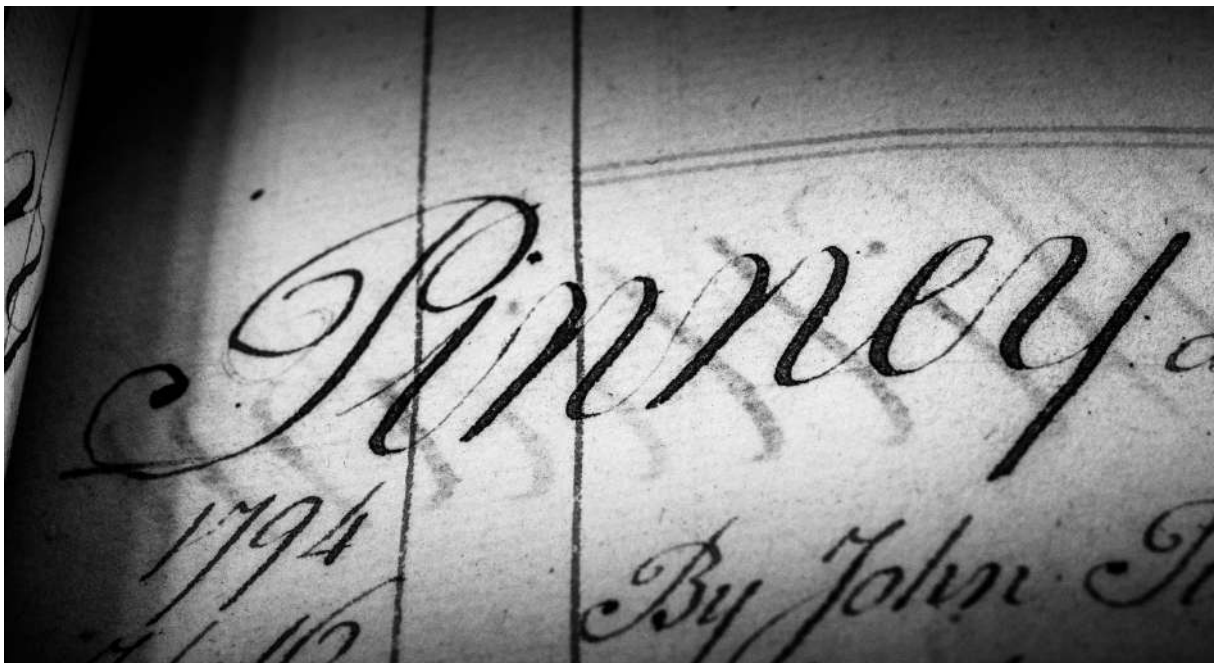 Pinney
1794
By John